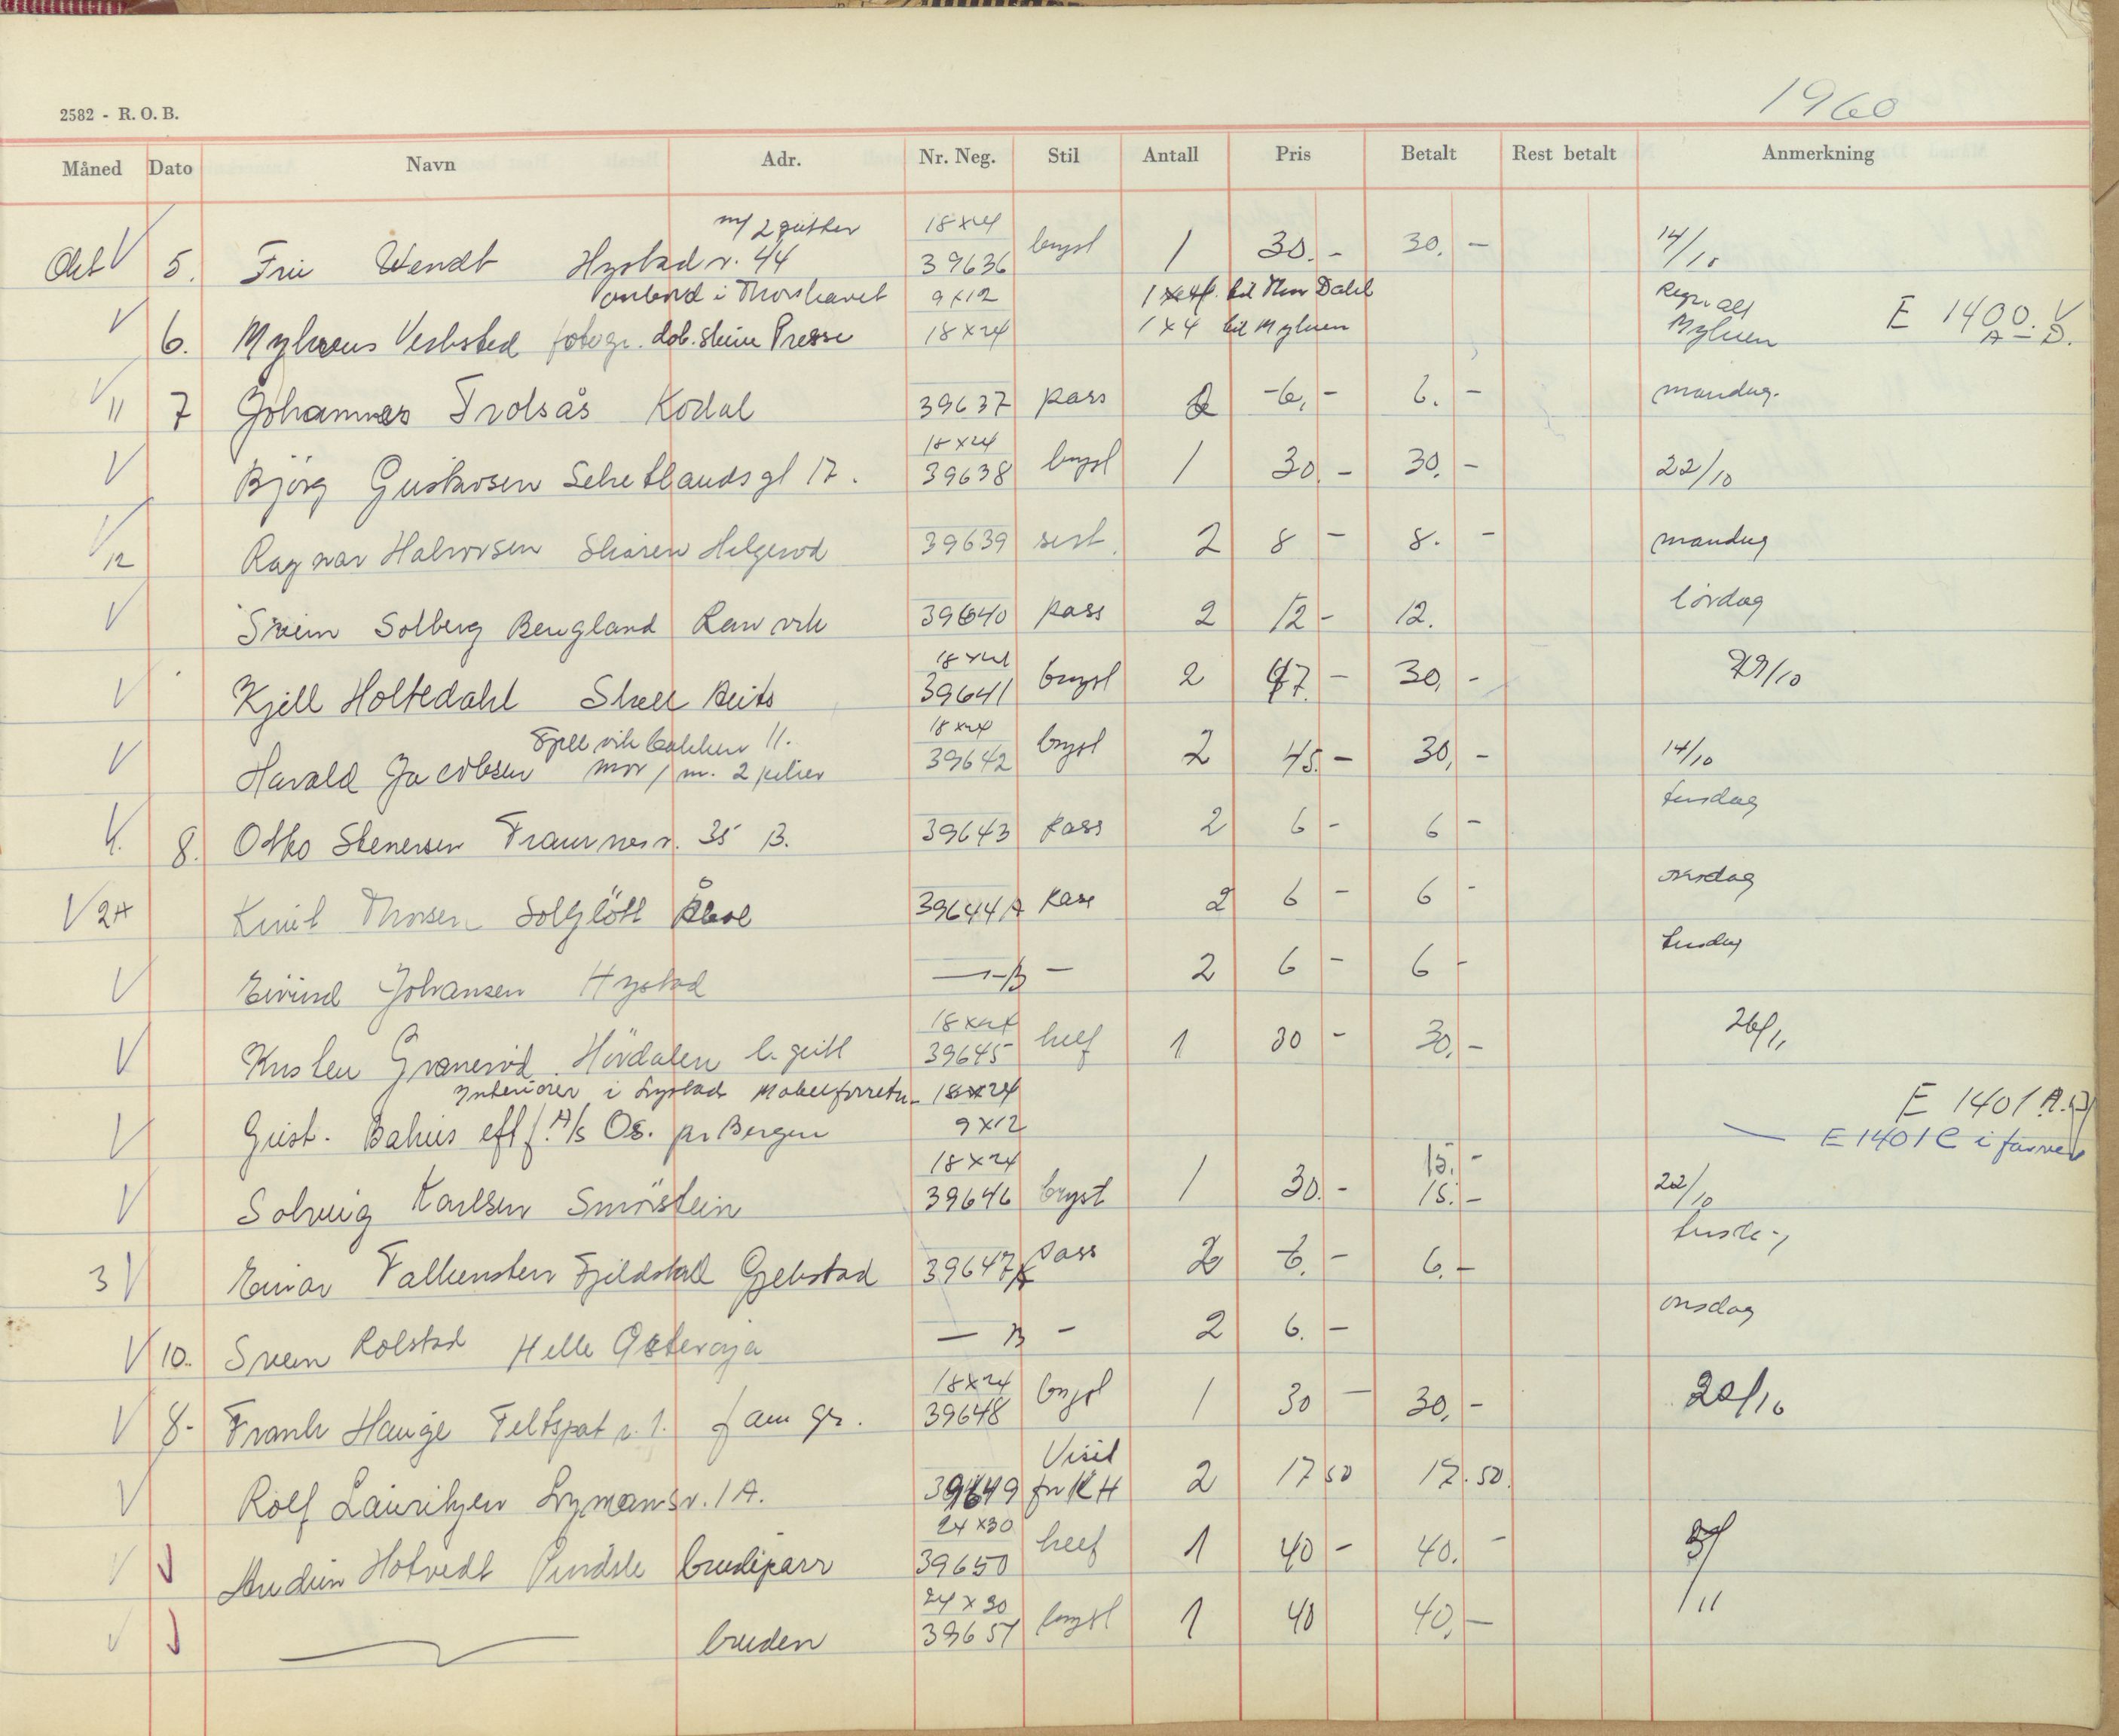 1960
2582 - R. O. B.
Måned Dato Navn Adr. Nr. Neg. Stil Antall Pris Betalt Rest betalt Anmerkning
m/ 2 gutter 18x24
Okt V 5. Fru Wendt Hystad v. 44 39636 bryst 1 30.- 30.- 14/10
ombord i Thorshavet 9x12 1x4 til Thor Dahl Regn. alt
V 6. Myhrens Verksted fotogr. dob. skrue Presse 18x24 1x4 til Myhren Myhren E 1400. A-D. V
V 11 7 Johannes Trolsås Kodal 39637 pass 2 -6,- 6.- mandag.
18x24
V Bjørg Gustavsen Schetlandsgt 17. 39638 bryst 1 30.- 30.- 22/10
V 12 Ragnar Halvorsen Skåren Helgerød 39639 sert. 2 8 - 8.- mandag
V Svein Solberg Bergland Ranvik 39640 pass 2 12- 12. lørdag
18x24
V Kjell Holtedahl Shell huits 39641 bryst 2 47.- 30,- 29/10
Fjellvikbakken 11. 18x24
V Harald Jacobsen mor / m. 2 piker 39642 bryst 2 45.- 30,- 14/10
V. 8. Otto Stenersen Framnesv. 35 B. 39643 pass 2 6- 6- tirsdag
V 24 Knut Thorsen Solgløtt 39644A pass 2 6- 6- onsdag
V Eivind Johansen Hystad -"-B - 2 6- 6- tirsdag
18x24
V Granerød Hørdalen l. gutt 39645 helf 1 30- 30.-
Interiører i Lystad Møbelforretn- 18x24 E 1401 A.
V Gust. Bahus eftf. A/S Os. pr Bergen 9x12 E 1401 C i farver
18x24 15.-
V Solveig Karlsen Smørstein 39646 bryst 1 30.- 15.- 22/10
3 V Einar Falkensten Fjeldstall Gjekstad 39647A pass 2 6.- 6.-
V 10. Svein Rolstad Helle Østerøya - B - 2 6.- onsdag
18x24
V 8- Frank Hauge Feltspat v. 1. fam gr. 39648 bryst 1 30 - 30,- 20/10
Visit
V Rolf Lauritzen Lizmansv. 1 A. 39649 for KH 2 17 50 17.50
24x30
V V Audun Hotvedt Pindsle brudeparr 39650 helf 1 40 - 40.-
24x30 /11
V V bruden 39651 bryst 1 40 40,-